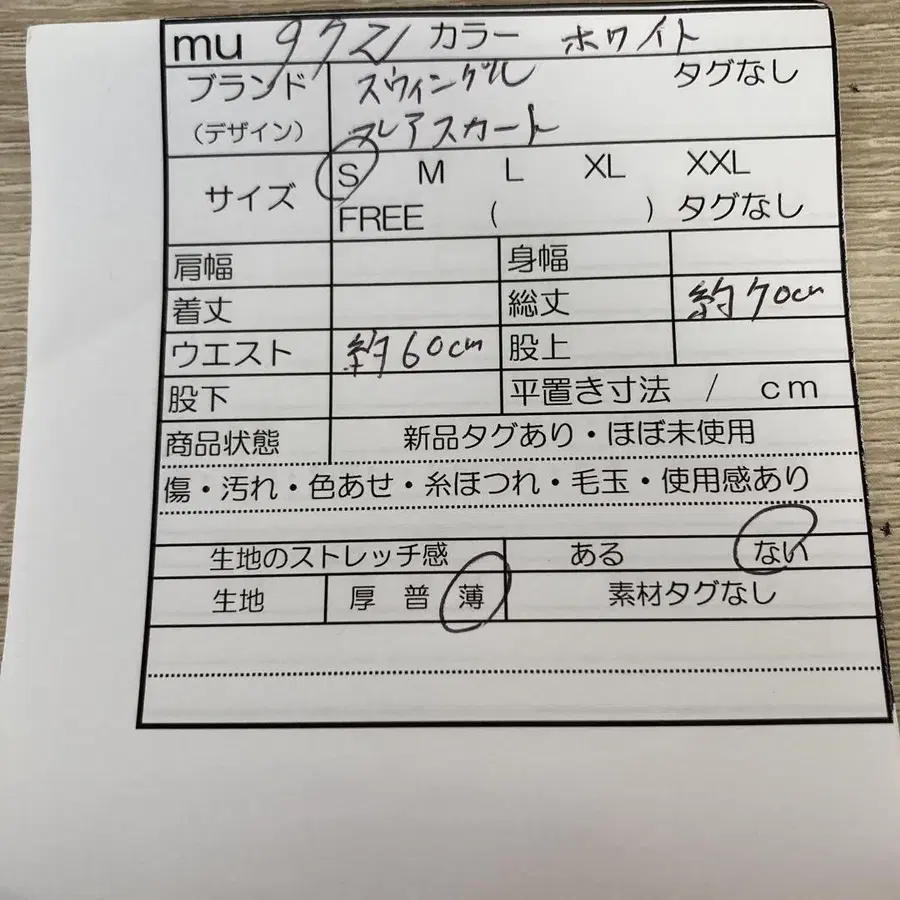 mu 972 カラー ホワイト
ブランド スウィングル タグなし
(デザイン) フレアスカート
サイズ S M L XL XXL
FREE ( ) タグなし
肩幅 身幅
着丈 総丈 約70cm
ウエスト 約60cm 股上
股下 平置き寸法 / cm
商品状態 新品タグあり・ほぼ未使用
傷・汚れ・色あせ・糸ほつれ・毛玉・使用感あり
生地のストレッチ感 ある ない
生地 厚 普 薄 素材タグなし